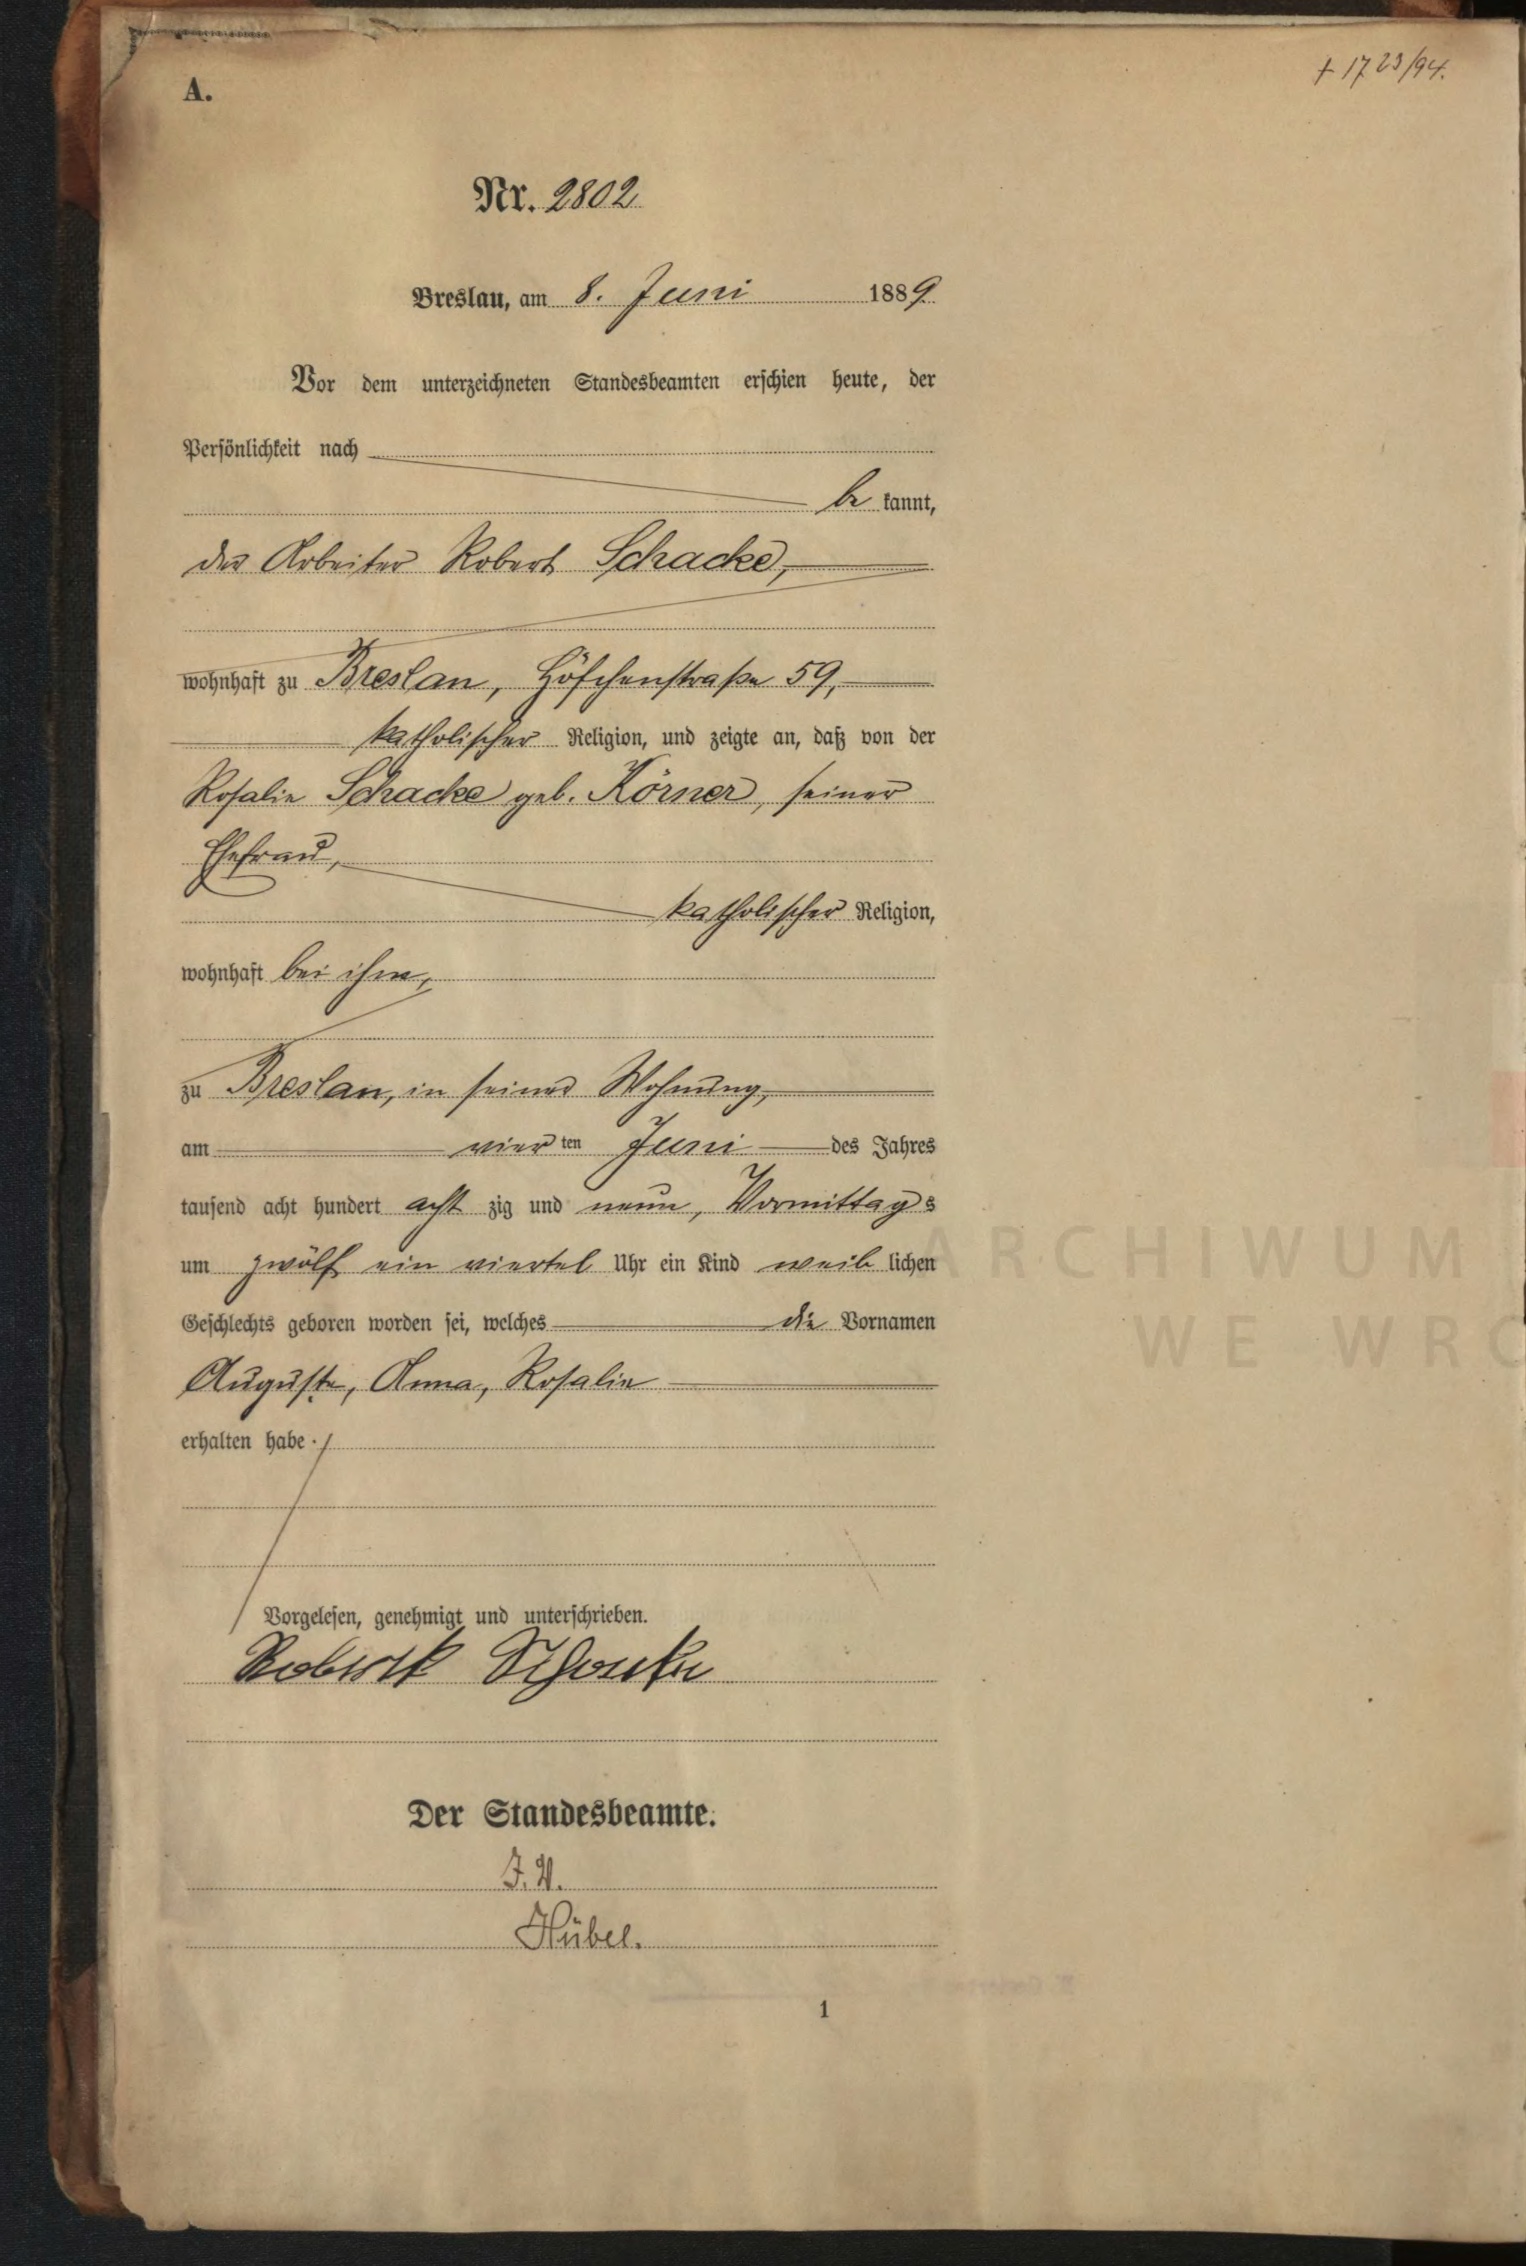 † 1723/94.
A.
Nr. 2802
Breslau, am 8. Juni 1889
Vor dem unterzeichneten Standesbeamten erschien heute, der
Persönlichkeit nach
be kannt,
der Arbeiter Robert Schacke,
wohnhaft zu Breslau, Höfchenstraße 59,
katholischer Religion, und zeigte an, daß von der
Rosalie Schacke geb. Körner, seiner
Ehefrau,
katholischer Religion,
wohnhaft bei ihm,
zu Breslau, in seiner Wohnung,
am vier ten Juni des Jahres
tausend acht hundert acht zig und neun, Vormittags
um zwölf ein viertel Uhr ein Kind weib lichen
Geschlechts geboren worden sei, welches die Vornamen
Auguste, Anna, Rosalie
erhalten habe.
Vorgelesen, genehmigt und unterschrieben.
Robert Schacke
Der Standesbeamte.
J. V.
Hübel.
1
ARCHIWUM
WE WRO